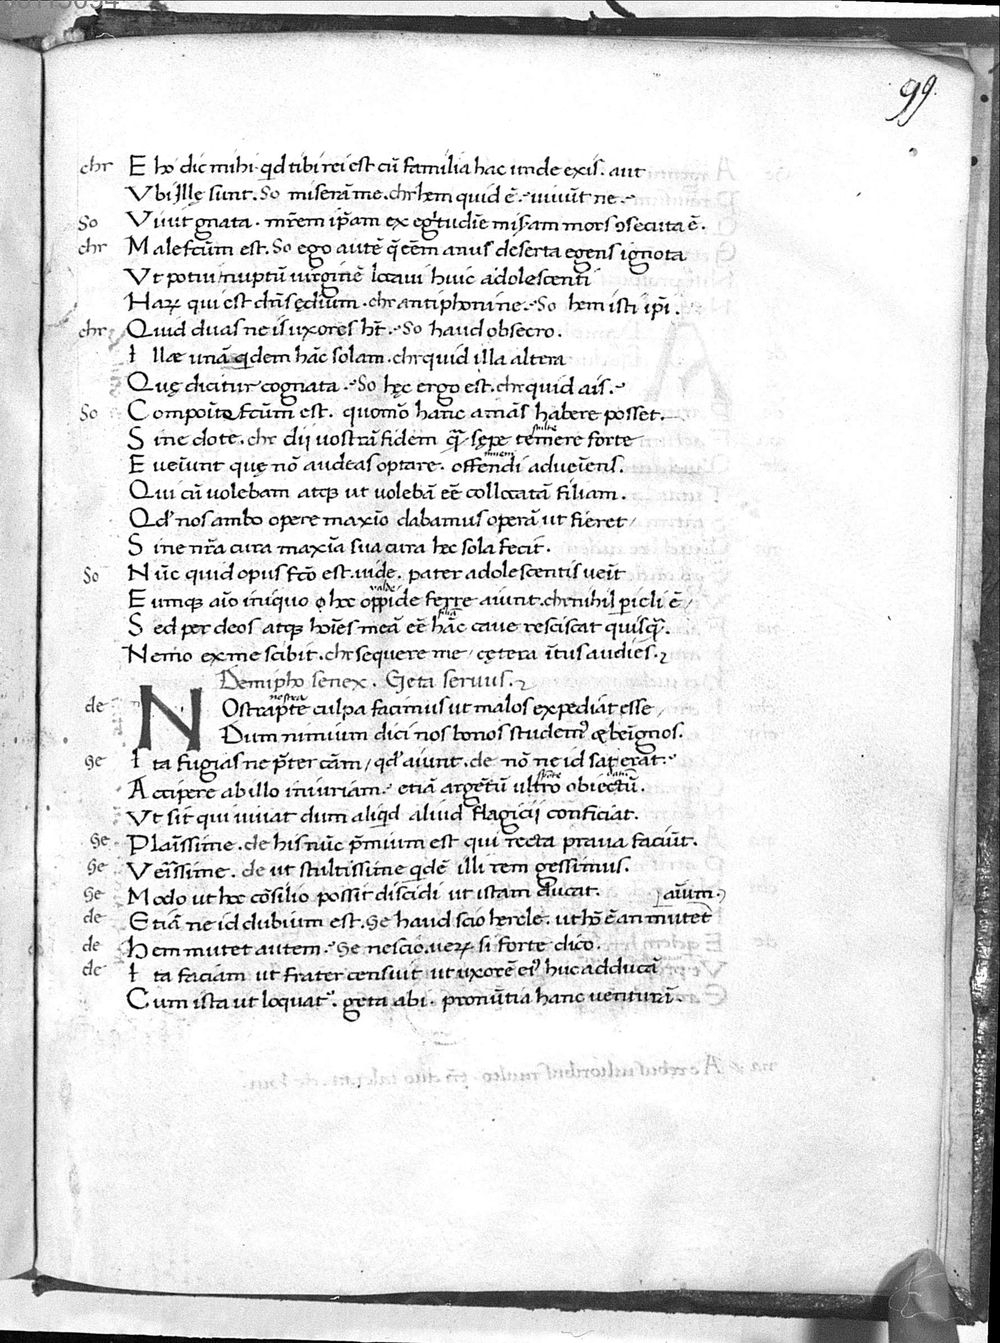 99
chr E ho dic mihi. qd tibi rei est cũ familia hac unde exis. aut
Vbi Jllę sunt. So miserã me. chr hem quid ẽ. uiuũt ne.
So Viuit gnata. mr̃em ip̃am ex egritudĩe mis̃am mors ɔsecuta ẽ.
chr Malefcũm est. So ego autẽ q̃ eẽm anus deserta egens ignota
Vt potui nuptũ uirginẽ locaui huic adolescenti
Haꝝ qui est dñs ędium. chr antiphonine. So hem isti ip̃i.
chr Quid duas ne is uxores ht̃. So haud obsecro.
I llæ unã qdem hãc solam. chr quid illa altera
Quę dicitur cognata. So hęc ergo est. chr quid ais.
So Compoito fcũm est. quomõ hanc amãs habere posset.
S ine dote. chr dij uostrã fidem q̃ sępe temere forte
stulte
E ueĩunt quę nõ audeas optare. offendi adueĩens.
inueni
Qui cũ uolebam atqꝫ ut uolebã eẽ collocatã filiam.
Qd' nos ambo opere maxĩo dabamus operã ut fieret
S ine nr̃a cura maxĩa sua cura hec sola fecit.
So Nũc quid opus fcõ est. uide. pater adolescentis ueĩt
E umqꝫ aĩo iniquo hoc oppide ferre aiunt. chr nihil picli ẽ
valde
S ed per deos atqꝫ hoĩes meã eẽ hãc caue resciscat quisq̃.
filiã
Nemo ex me scibit. chr sequere me, cętera ĩtus audies.
Demipho senex. Geta seruus.
de NOstrapte culpa facimus ut malos expediat esse
nostra
Dum nimium dici nos bonos studem' & beĩgnos.
ge I ta fugias ne p̃ter cãm, qd' aiunt. de nõ ne id sat erat.
Accipere ab illo iniuriam. etiã argẽtũ ultro obiectũ.
sponte datũ
Vt sit qui uiuat dum aliqd aliud flagicij conficiat.
ge Plaĩssime. de his nũc p̃mium est qui recta praua faciũt.
ge Veĩssime. de ut stultissime qdẽ illi rem gessimus.
ge Modo ut hoc cõsilio possit discidi ut istam ducat. aĩum.
de Etiã ne id dubium est. ge haud scio hercle. ut hõ ẽ an mutet
de Hem mutet autem. ge nescio. ueꝝ si forte dico.
de I ta faciam ut frater censuit ut uxorẽ ei' huc adducã
Cum ista ut loquat'. geta abi. pronũtia hanc uenturã.